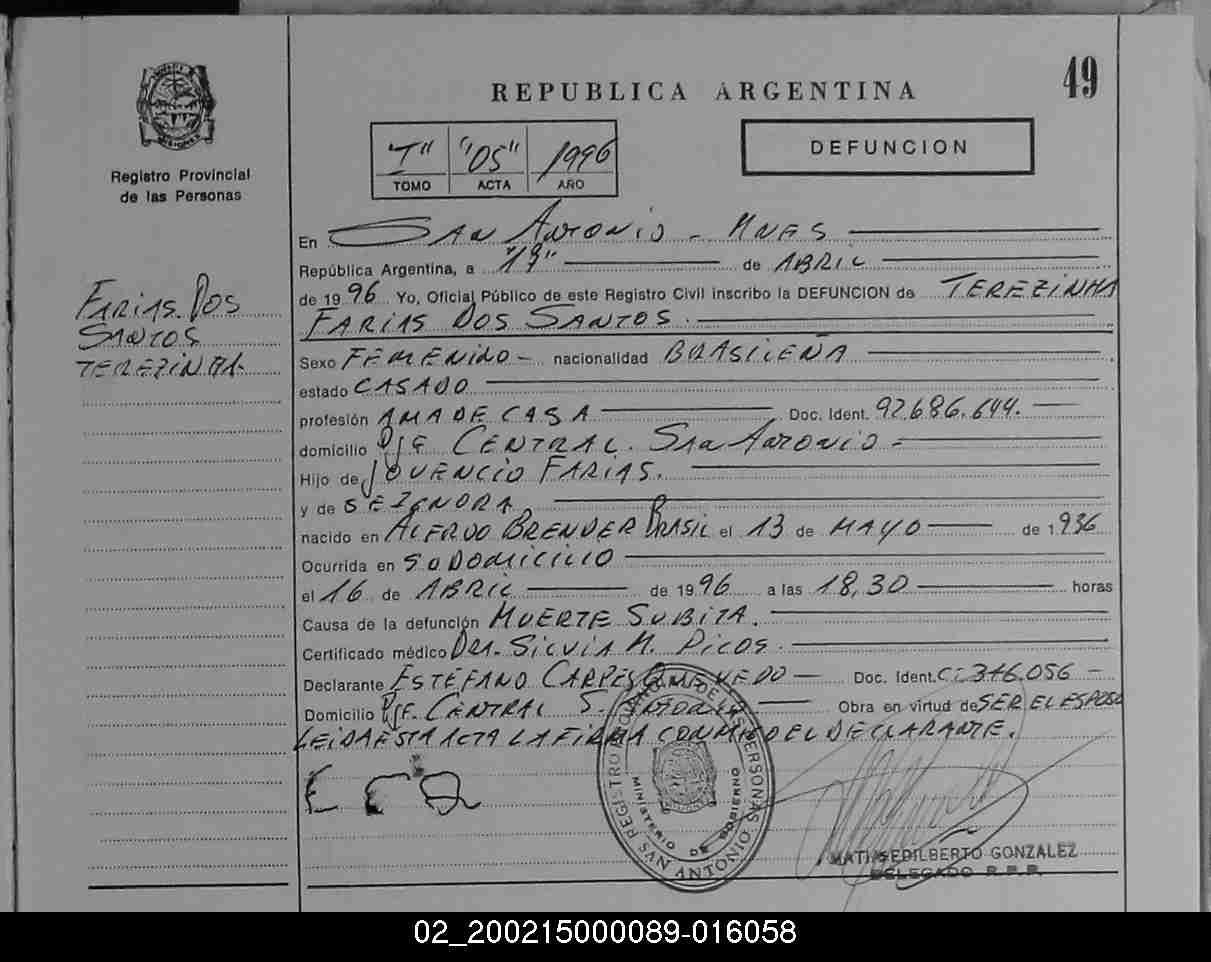 49
REPUBLICA ARGENTINA
MISIONES
Registro Provincial
de las Personas
I" "05" 1996
TOMO ACTA AÑO
DEFUNCION
FARIAS DOS
SANTOS
TEREZINHA-
En SAN ANTONIO - MNES
República Argentina, a "19" de ABRIL
de 1996 Yo, Oficial Público de este Registro Civil inscribo la DEFUNCION de TEREZINHA
FARIAS DOS SANTOS.
Sexo FEMENINO - nacionalidad BRASILEÑA
estado CASADO
profesión AMA DE CASA Doc. Ident. 92.686.644.
domicilio PJE CENTRAL. San Antonio -
Hijo de JOVENCIO FARIAS.
y de SEIGNORA
nacido en BRENDER BRASIL el 13 de MAYO de 1936
Ocurrida en SU DOMICILIO
el 16 de ABRIL de 1996 a las 18,30 horas
Causa de la defunción MUERTE SUBITA.
Certificado médico DRA. SILVIA M. PICOS.
Declarante ESTEFANO Doc. Ident. C.I 346.056 -
Domicilio PJE. CENTRAL S. ANTONIO Obra en virtud de SER EL ESPOSO
LEIDA ESTA ACTA LA FIRMA CONMIGO EL DECLARANTE.
REGISTRO PROVINCIAL DE LAS PERSONAS
MINISTERIO DE GOBIERNO
SAN ANTONIO
MATIAS EDILBERTO GONZALEZ
DELEGADO R.P.P.
02_200215000089-016058